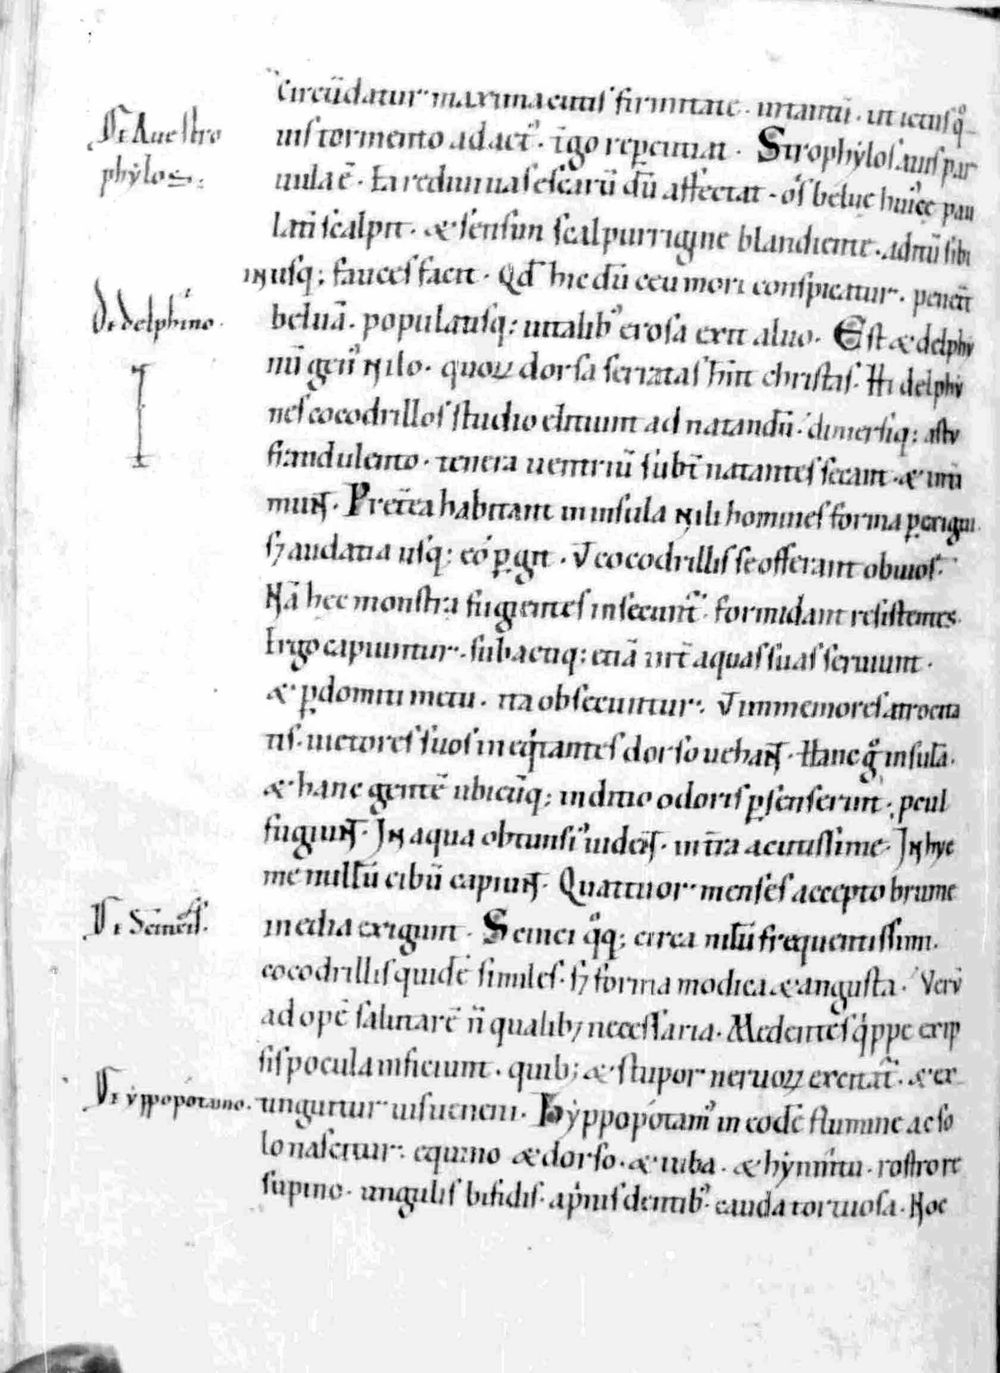 circūdatur maxima cutis firmitate . intantū . ut ictus qͦ
uis tormento adact᾽ . t̄go repcutiat . Strophylos auis par
uula ē . Ea reduuias escarū dū affectat . os belue huic pau
latī scalpit . & sensim scalpurrigine blandiente . aditū sibi
inusq; fauces facit . Qd̄ hic dū ceu mori conspicatur . penetͣt
beluā . populatisq; uitalib᾽ erosa exit aluo . Est & delphi
nū gen᾽ Nilo . quoꝝ dorsa serratas hn̄t christas . Hi delphi
nes cocodrillos studio eliciunt ad natandū . dimersiq; astu
fraudulento . tenera uentriū subt̄ natantes secant . & int̄i
muNt . Pret̄ea habitant in insula Nili homines forma ꝑexigui
sꝫ audatia usq; eo ꝑgit . ut cocodrillis se offerant obuios .
Nā hec monstra fugientes insecunt᾽ . formidant resistentes .
Ergo capiuntur . subactiq; etiā int̄ aquas suas seruiunt .
& ꝑdomiti metu . ita obsecuntur . ut inmemores atrocita
tis . uictores suos ineqͥtantes dorso uehaNt . Hanc gͦ insulā .
& hanc gentē ubicūq; inditio odoris ꝑsenserint . pcul
fugiuNt . IN aqua obtunsi᾽ uideNt . in t̄ra acutissime . IN hye
me nullū cibū capiuNt . Quattuor menses accepto brume
media exigunt . Scinci qͦq; circa nilū frequentissimi .
cocodrillis quidē similes . sꝫ forma modica & angusta . Verū
ad opē salutarē n̄ qualibꝫ necessaria . Medentes qͥppe ex ip
sis pocula inficiunt . quib; & stupor neruoꝝ excitat᾽ . & ex
tinguitur uis ueneni . Hyppopotam᾽ in eodē flumine ac so
lo nascitur . equino & dorso . & iuba . & hynnitu . rostro re
supino . ungulis bifidis . aprinis dentib᾽ . cauda tortuosa . Noc
De Aue stro
phylos :
De delphino .
De Scincis .
De yppopotamo .